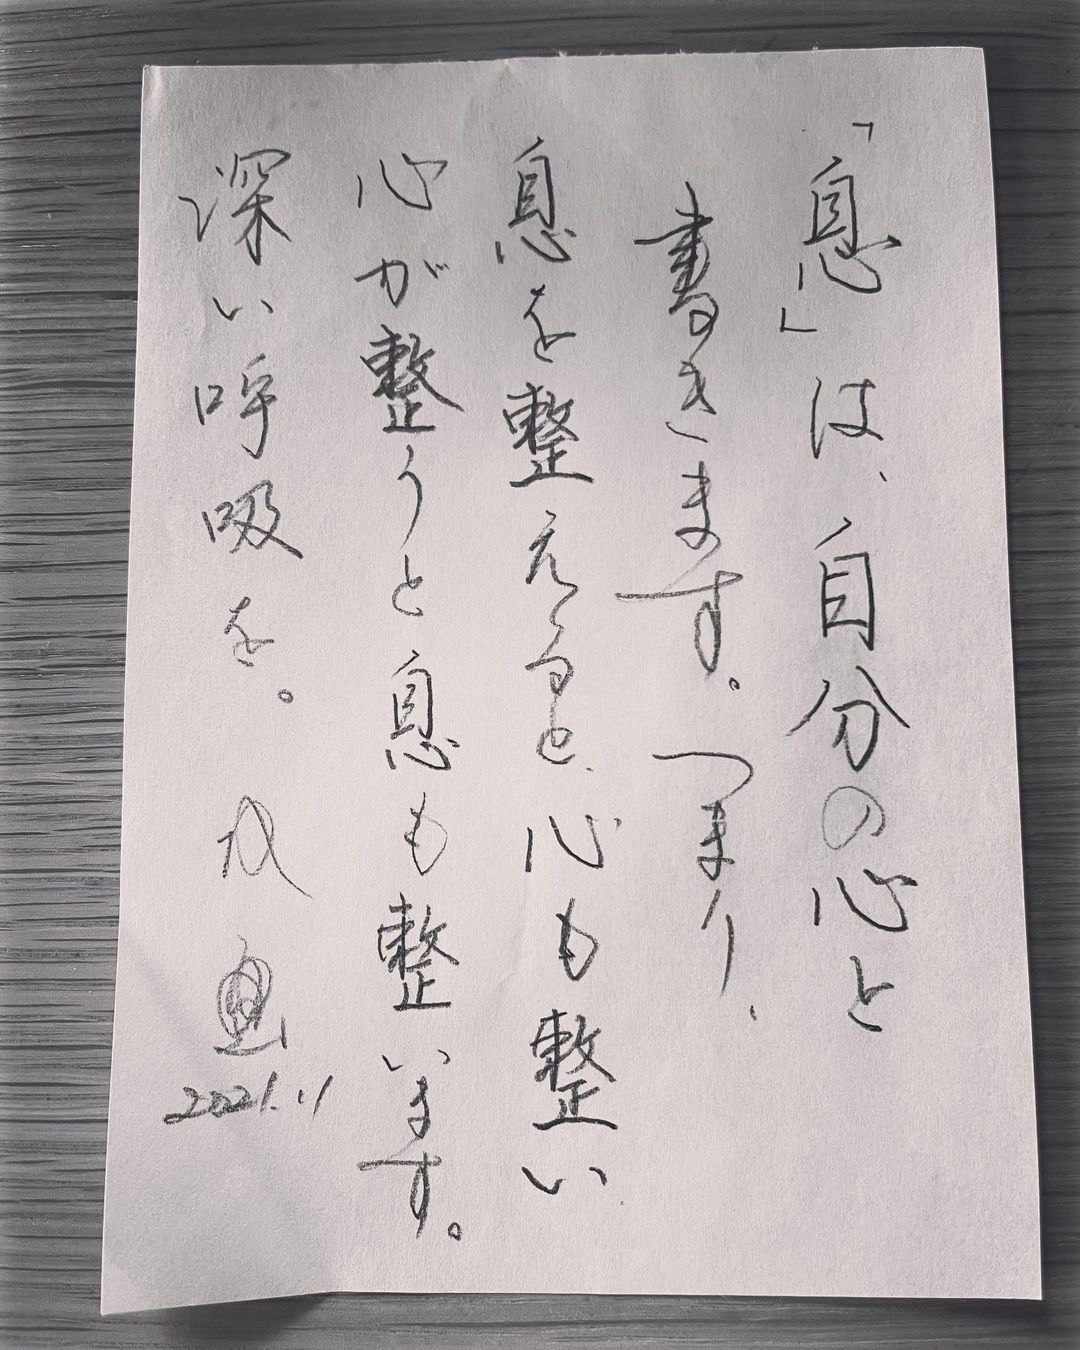 「息」は、自分の心と
書きます。つまり、
息を整えると、心も整い
心が整うと息も整います。
深い呼吸を。
2021.11